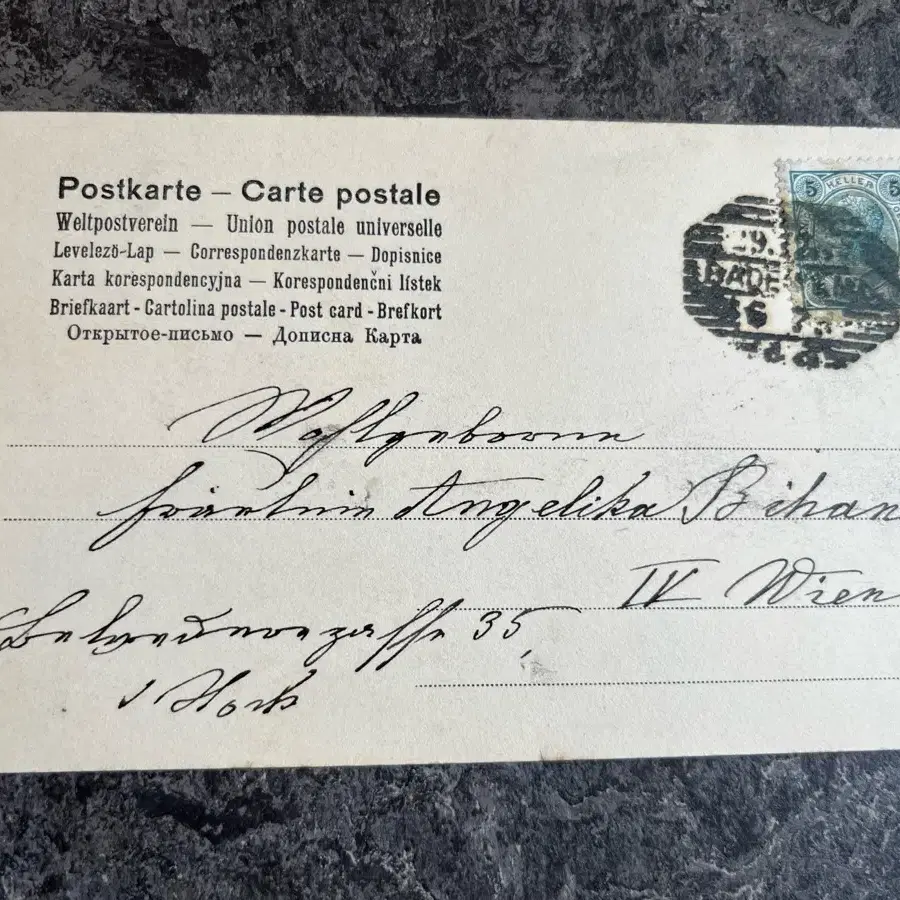 Postkarte – Carte postale
Weltpostverein — Union postale universelle
Levelező-Lap — Correspondenzkarte — Dopisnice
Karta korespondencyjna — Korespondenčni lístek
Briefkaart - Cartolina postale - Post card - Brefkort
Открытое-письмо — Дописна Карта
5 HELLER 5
29.
6
Wohlgeborene
Fräulein Angelika Bihan
IV Wien
Belvederegasse 35,
1 Stock